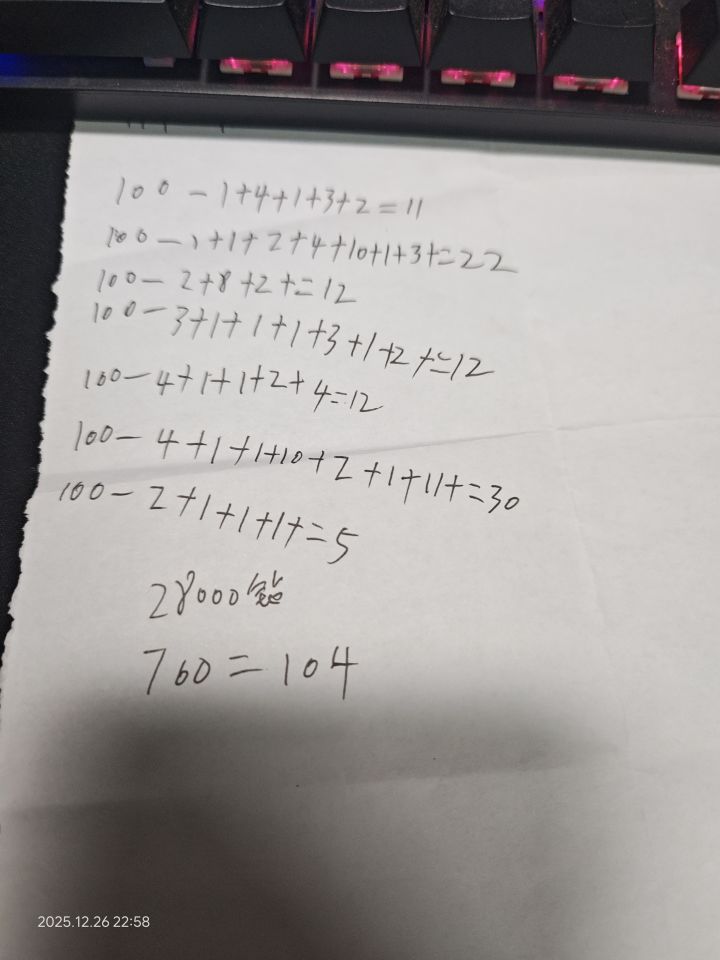 100-1+4+1+3+2=11
100-1+1+2+4+10+1+3+=22
100-2+8+2+=12
100-3+1+1+1+3+1+2+=12
100-4+1+1+2+4=12
100-4+1+1+10+2+1+11+=30
100-2+1+1+1+=5
28000钻
760=104
2025.12.26 22:58